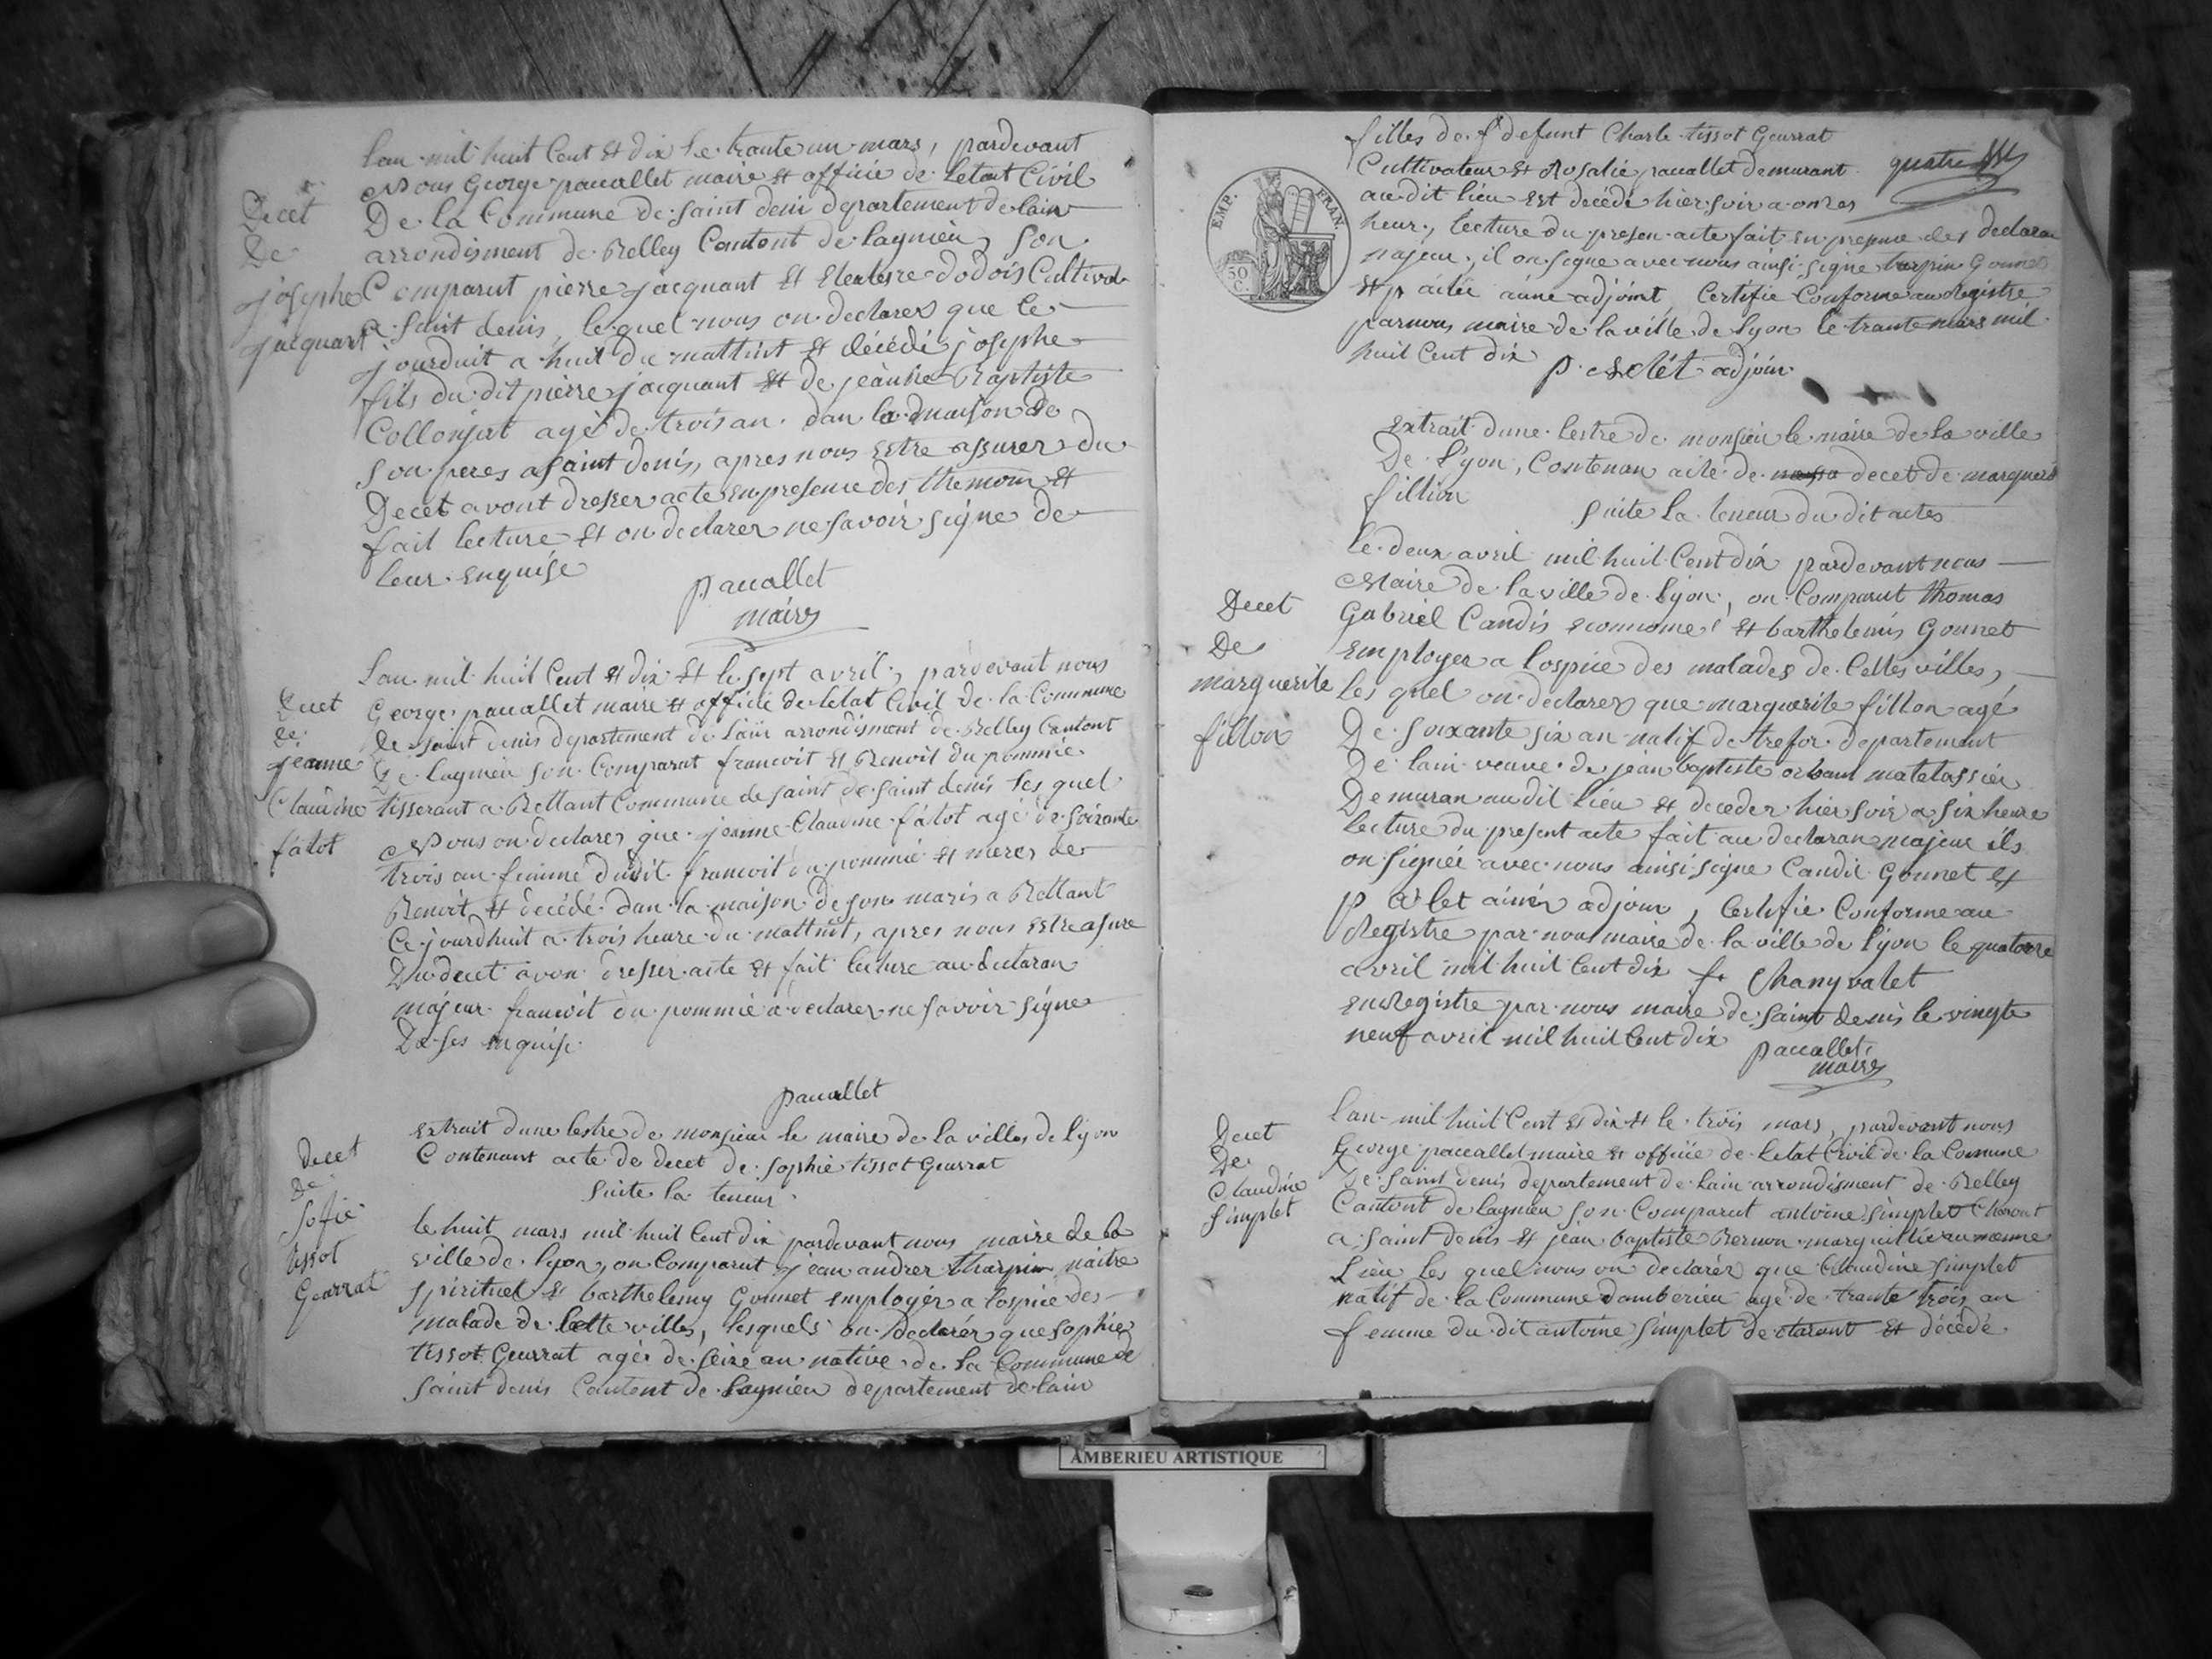 lan mil huit Cent et dix le trante un mars, pardevant
Nous George pauallet maire et officié de letat Civil
De la Commune de saint deni departement de lain
arrondisment de Belley Cantont de lagnieu, son
Comparut pierre jacquant et Cultivat
a saint denis, lequel nous on declarer que le
jourduit a huit du mattint et décédé josephe
fils du dit pierre jacquant et de jeanne Baptiste
Collonjat agé de trois an dan la maison de
son peres a saint denis, apres nous estre assurer du
Decet avont dresser acte en presense des themoin et
fait lecture et on declarer ne savoir signe de
leur enquise
pauallet
maire
Decet
De
josephe
jacquant
lan mil huit Cent et dix et le sept avril, pardevant nous
George pauallet maire et officié de letat Civil de la Commune
de saint denis departement de lain arrondisment de Belley Cantont
de lagnieu son Comparut francoit et Benoit du pommie
tisserant a Bettant Commune de saint de saint denis les quel
Nous on declarer que jeanne Claudine fatot agé de soixante
trois an femme dudit francoit du pommié et meres de
Benoit et decédé dan la maison de son maris a Bettant
Ce jourdhuit a trois heure du mattint, apres nous estre asure
Du decet avon dresser acte et fait lecture au declaran
majeur francoit du pommié a declarer ne savoir signe
De ses enquise
pauallet
Decet
de
jeanne
Claudine
fatot
extrait dune lestre de monsieur le maire de la villes de lyon
Contenant acte de decet de sophie tissot Geurrat
suite la teneur
le huit mars mil huit Cent dix pardevant nous maire de la
ville de lyon, on Comparut jean andrer tharpin maitre
spirituel et barthelemy Gonnet employer a lospice des
malade de Cette villes, lesquels on declarér que sophie
tissot Geurrat agée de seize an native de la Commune de
saint denis Cantont de lagnieu departement de lain
Decet
de
sofie
tissot
Gearrat
filles de f defunt Charle tissot Geurrat
Cultivateur et Rosalie pauallet demurant
audit lieu est decédé hier soir a onzes
heur, lecture du presen acte fait en presence des declaran
majeur, il on signe avec nous ainsi signe tharpin Gonnet
et p ainé adjoint Certifie Conforme au Registre
par nous maire de la ville de lyon le trante mars mil
huit Cent dix
adjoin
quatre
EMP. FRAN.
50
C.
extrait dune lestre de monsieu le maire de la ville
De Lyon, Contenan acte de decet de marguerit
fillion
suite la teneur du dit actes
le deux avril mil huit Cent dix pardevant nous
Maire de la ville de lyon, on Comparut thomas
Gabriel Candis econnome et barthelemis Gonnet
employer a lospice des malades de Celtes villes,
les quel on declarer que marguerite fillon agé
De soixante six an natif de trefor departement
De lain veuve de jean baptiste orban matelassiér
Demuran audit lieu et deceder hier soir a six heure
lecture du present acte fait au declaran majeur ils
on signéé avec nous ainsi signe Candi Gonnet et
p ainér adjoin, Certifie Conforme au
Registre par nou maire de la ville de lyon le quatorze
avril mil huit Cent dix
enregistre par nous maire de saint denis le vingte
neuf avril mil huit Cent dix
pauallet
maire
Decet
De
marguerite
fillon
lan mil huit Cent et dix et le trois mars, pardevant nous
George pauallet maire et officié de letat Civil de la Comune
de saint denis departement de lain arrondisment de Belley
Cantont de lagnieu son Comparut antoine simplet Charont
a saint denis et jean baptiste Bernon marguillié au meme
Lieu les quel nous on declarér que Claudine simplet
natif de la Commune damberieu agé de trante trois an
femme du dit antoine simplet declarant et décédé
Decet
De
Claudine
simplet
AMBERIEU ARTISTIQUE